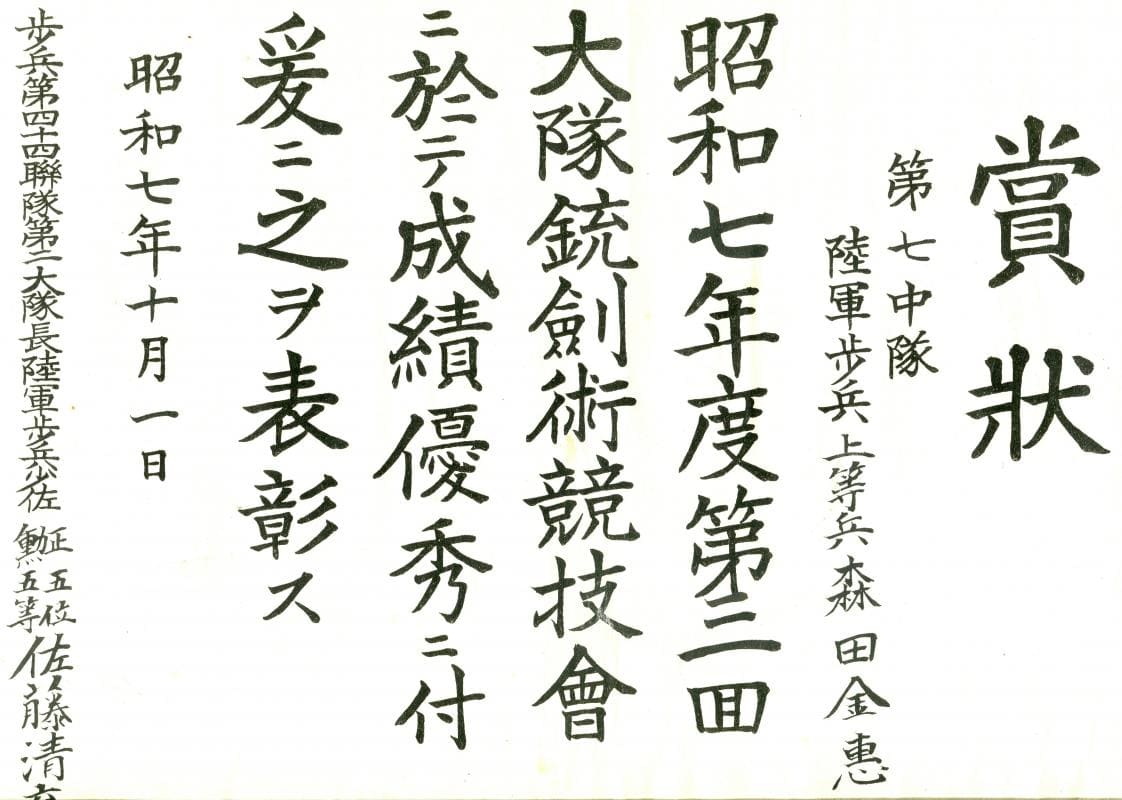 賞狀
第七中隊
陸軍歩兵上等兵森田金惠
昭和七年度第三囘
大隊銃劍術競技會
ニ於テ成績優秀ニ付
爰ニ之ヲ表彰ス
昭和七年十月一日
歩兵第四十四聯隊第三大隊長陸軍歩兵少佐 正五位 勲五等 佐藤清